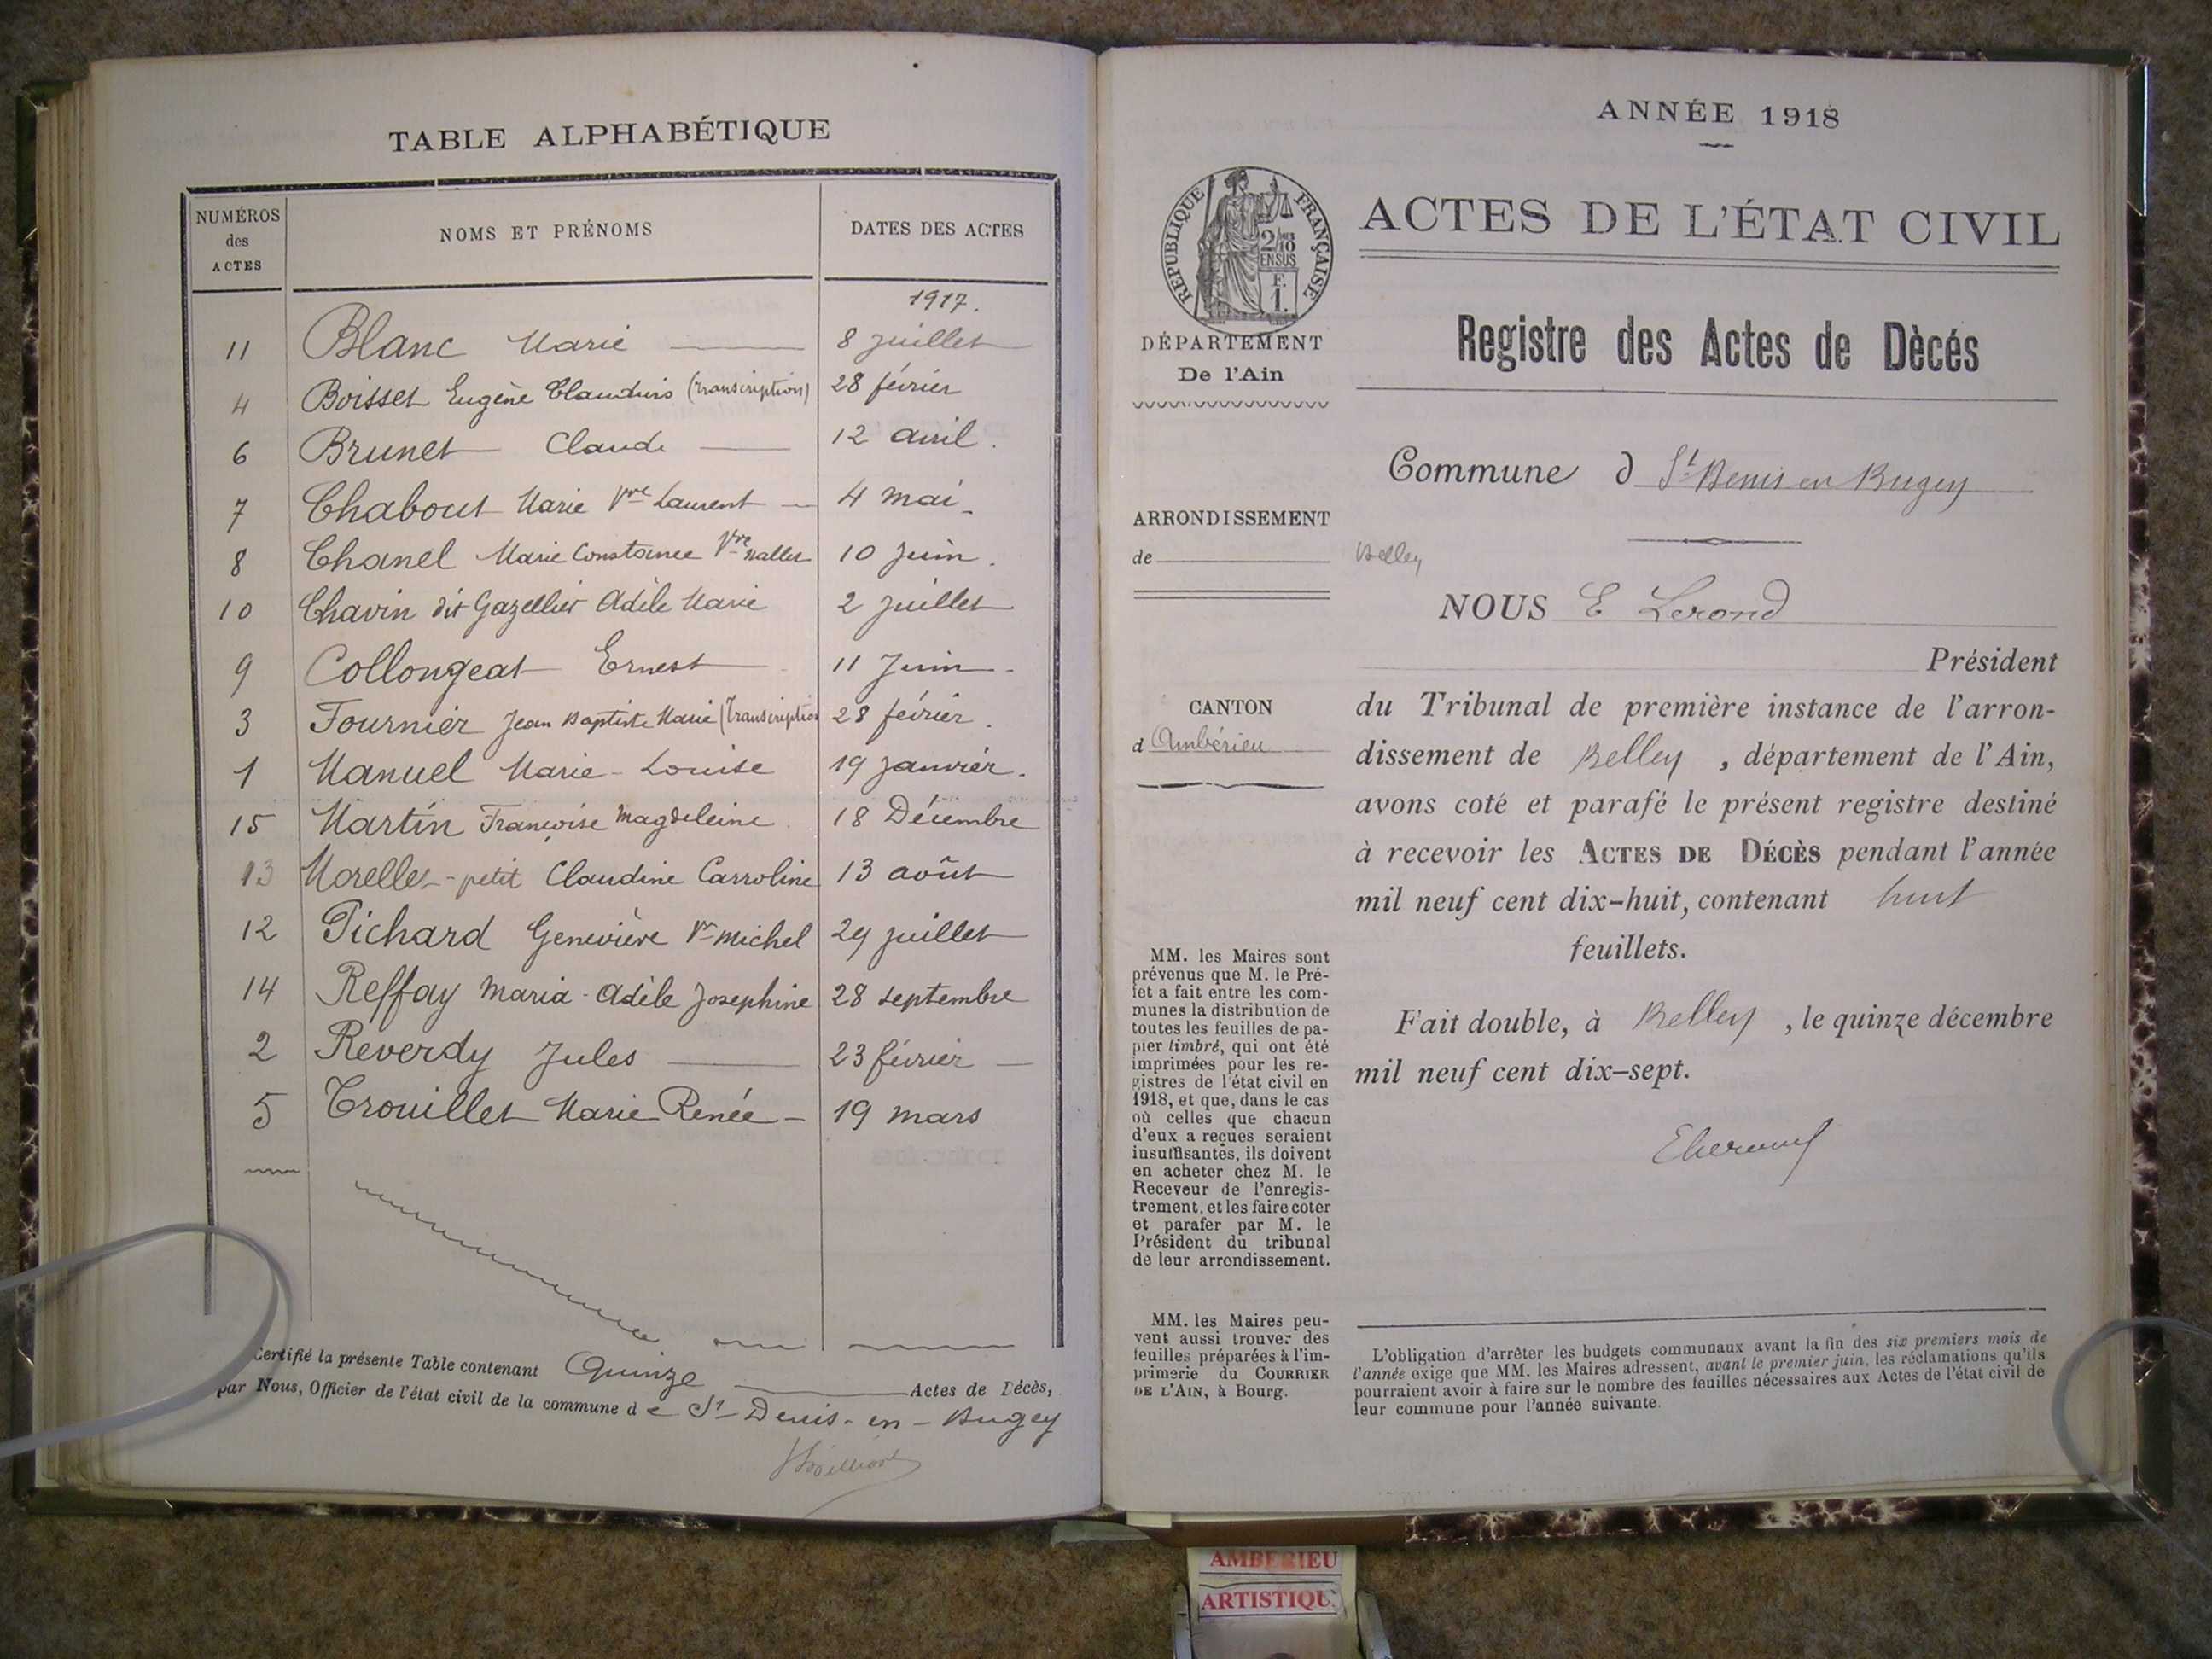 TABLE ALPHABÉTIQUE
NUMÉROS des ACTES NOMS ET PRÉNOMS DATES DES ACTES
1917.
11 Blanc Marie 8 juillet
4 Boisset Eugène Claudius (transcription) 28 février
6 Brunet Claude 12 avril.
7 Chabout Marie Vve Laurent 4 mai
8 Chanel Marie Constance Vve Nallet 10 juin.
10 Chavin dit Gazellier Adèle Marie 2 juillet
9 Collongeat Ernest 11 Juin
3 Fournier Jean Baptiste Marie (Transcription 28 février.
1 Manuel Marie-Louise 19 janvier.
15 Martin Françoise Magdeleine 18 Décembre
13 Morellet-petit Claudine Carroline 13 août
12 Pichard Geneviève Vve Michel 29 juillet
14 Reffay Maria-Adèle Josephine 28 septembre
2 Reverdy Jules 23 février
5 Trouillet Marie Renée 19 mars
Certifié la présente Table contenant Quinze Actes de Décès,
par Nous, Officier de l'état civil de la commune de St-Denis-en-Bugey
ANNÉE 1918
RÉPUBLIQUE FRANÇAISE
2/10 EN SUS
F. 1.
ACTES DE L'ÉTAT CIVIL
DÉPARTEMENT
De l'Ain
Registre des Actes de Dècés
Commune d St Denis en Bugey
ARRONDISSEMENT
de Belley
NOUS E Lerond
Président
CANTON
d Ambérieu
du Tribunal de première instance de l'arron-
dissement de Belley, département de l'Ain,
avons coté et parafé le présent registre destiné
à recevoir les ACTES DE DÉCÈS pendant l'année
mil neuf cent dix-huit, contenant huit
feuillets.
Fait double, à Belley, le quinze décembre
mil neuf cent dix-sept.
MM. les Maires sont
prévenus que M. le Pré-
fet a fait entre les com-
munes la distribution de
toutes les feuilles de pa-
pier timbré, qui ont été
imprimées pour les re-
gistres de l'état civil en
1918, et que, dans le cas
où celles que chacun
d'eux a reçues seraient
insuffisantes, ils doivent
en acheter chez M. le
Receveur de l'enregis-
trement, et les faire coter
et parafer par M. le
Président du tribunal
de leur arrondissement.
MM. les Maires peu-
vent aussi trouver des
feuilles préparées à l'im-
primerie du COURRIER
DE L'AIN, à Bourg.
L'obligation d'arrêter les budgets communaux avant la fin des six premiers mois de
l'année exige que MM. les Maires adressent, avant le premier juin, les réclamations qu'ils
pourraient avoir à faire sur le nombre des feuilles nécessaires aux Actes de l'état civil de
leur commune pour l'année suivante.
AMBERIEU
ARTISTIQU